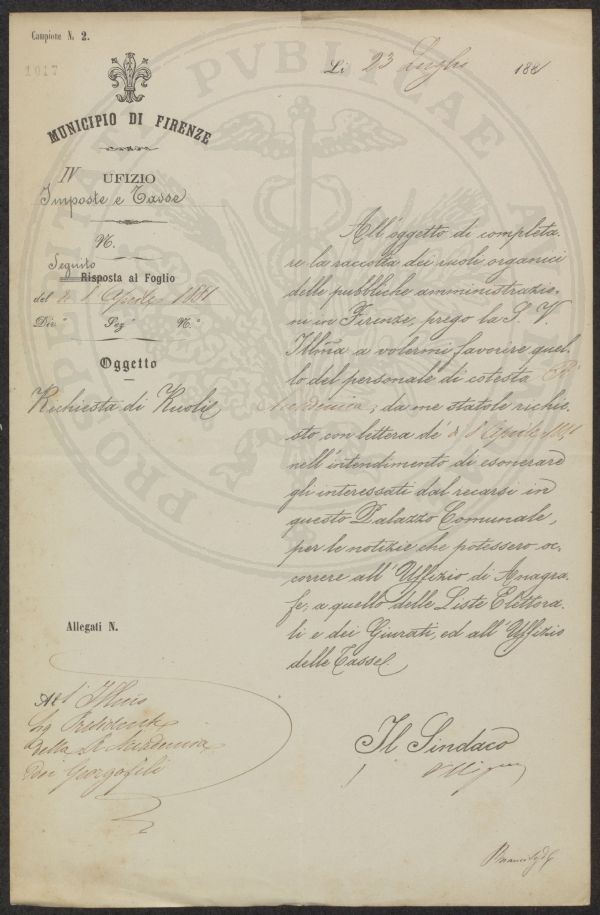 Campione N. 2.
1017
MUNICIPIO DI FIRENZE
IV UFIZIO
Imposte e Tasse
N.
Seguito
Risposta al Foglio
del dì 8 Aprile 1881
Div.e Sez.e N.o
Oggetto
Richiesta di Ruoli
Li 23 Luglio 1881
All'oggetto di completa-
re la raccolta dei ruoli organici
delle pubbliche amministrazio-
ni in Firenze, prego la S. V.
Illma a volermi favorire quel-
lo del personale di cotesta R.
Accademia, da me statole richie-
sto con lettera de' dì 8 Aprile 1881
nell'intendimento di esonerare
gli interessati dal recarsi in
questo Palazzo Comunale,
per le notizie che potessero oc-
correre all'Uffizio di Anagra-
fe, a quello delle Liste Elettora-
li e dei Giurati, ed all'Uffizio
delle Tasse.
Allegati N.
All' Illmo
Sig. Presidente
della R. Accademia
dei Georgofili
Il Sindaco
PROSPERITATI PVBLICAE